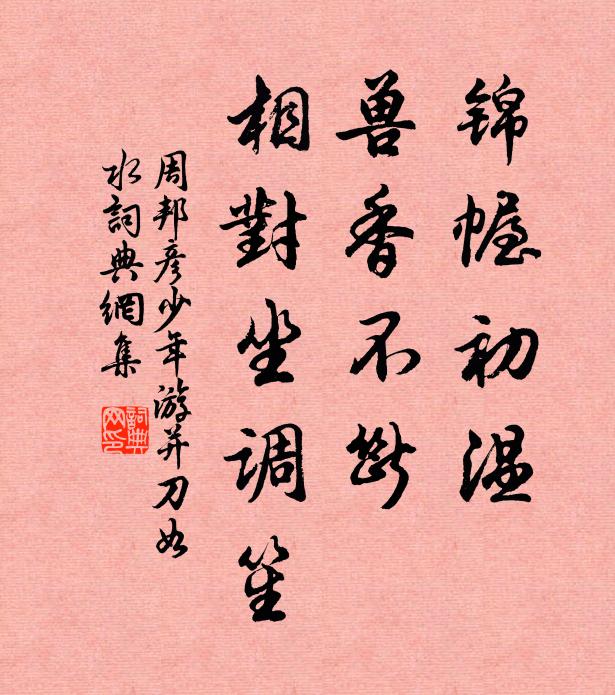 锦幄初温
兽香不断
相對坐调笙
周邦彦少年游并刀如
水詞典網集
詞典
网印